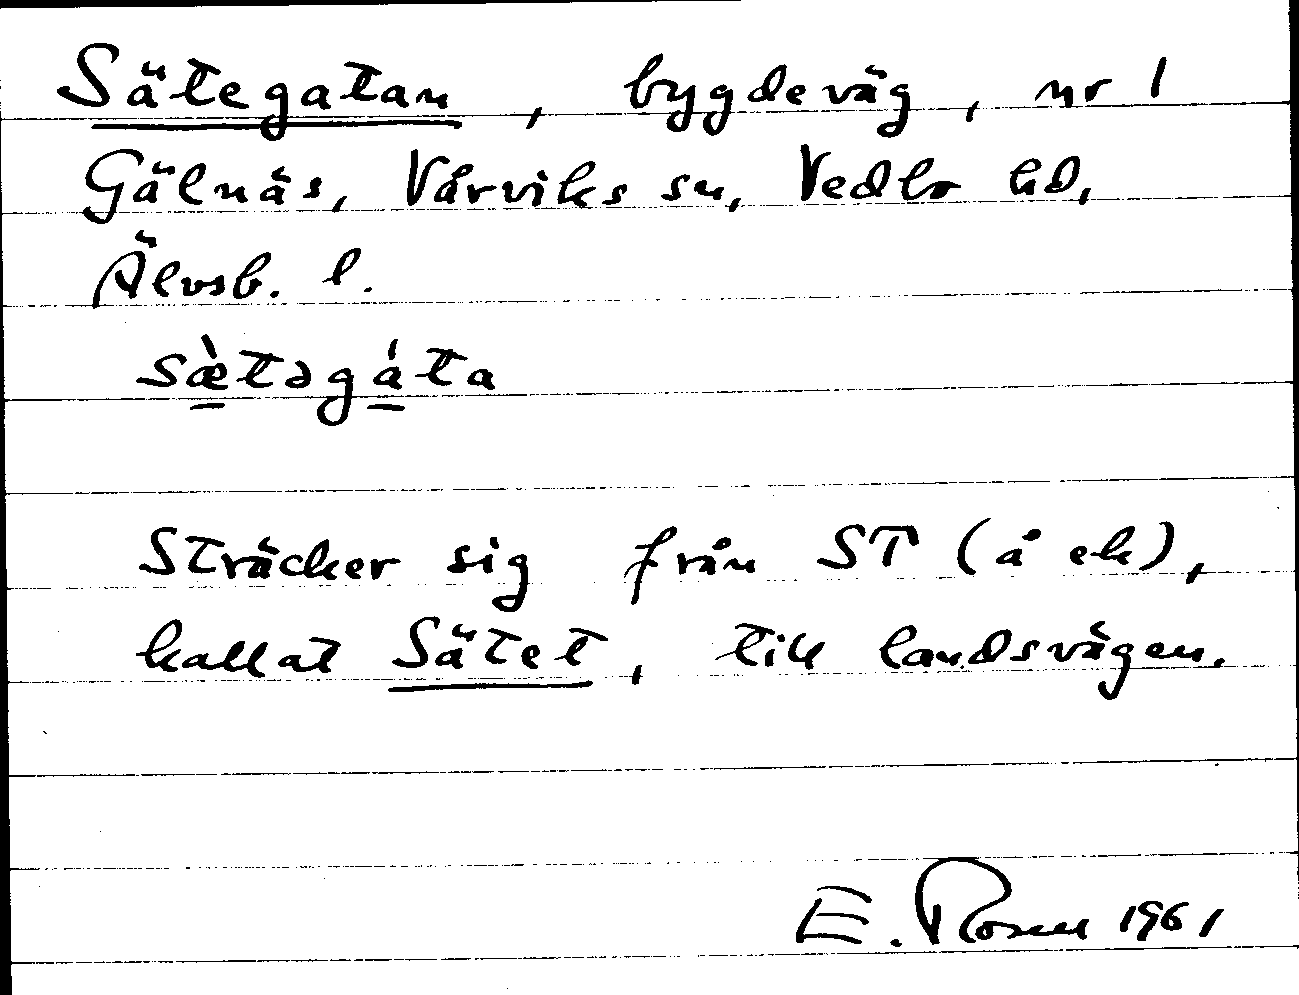 Sätegatan, bygdeväg, nr 1
Gälnäs, Vårviks sn, Vedbo hd,
Älvsb. l.
sæ̀təgáta
Sträcker sig från ST (å ek),
kallat Sätet, till landsvägen.
E. Rosen 1961